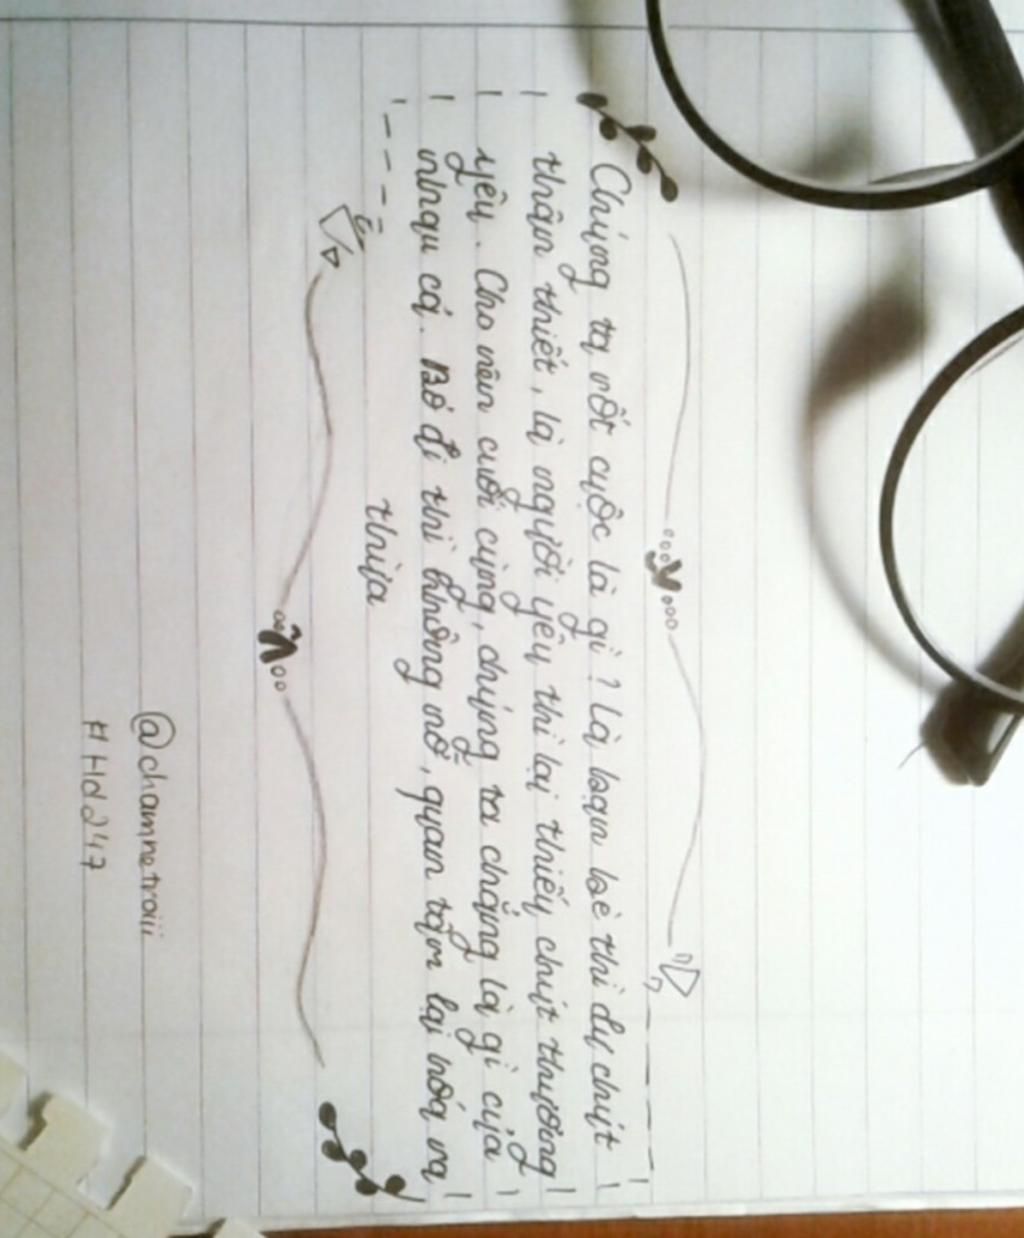 Chúng ta rốt cuộc là gì? Là bạn bè thì dư chút
thân thiết, là người yêu thì lại thiếu chút thương
yêu. Cho nên cuối cùng, chúng ta chẳng là gì của
nhau cả. Bỏ đi thì không nỡ, quan tâm lại hóa ra
thừa
@chamnetraiii
#Hd247